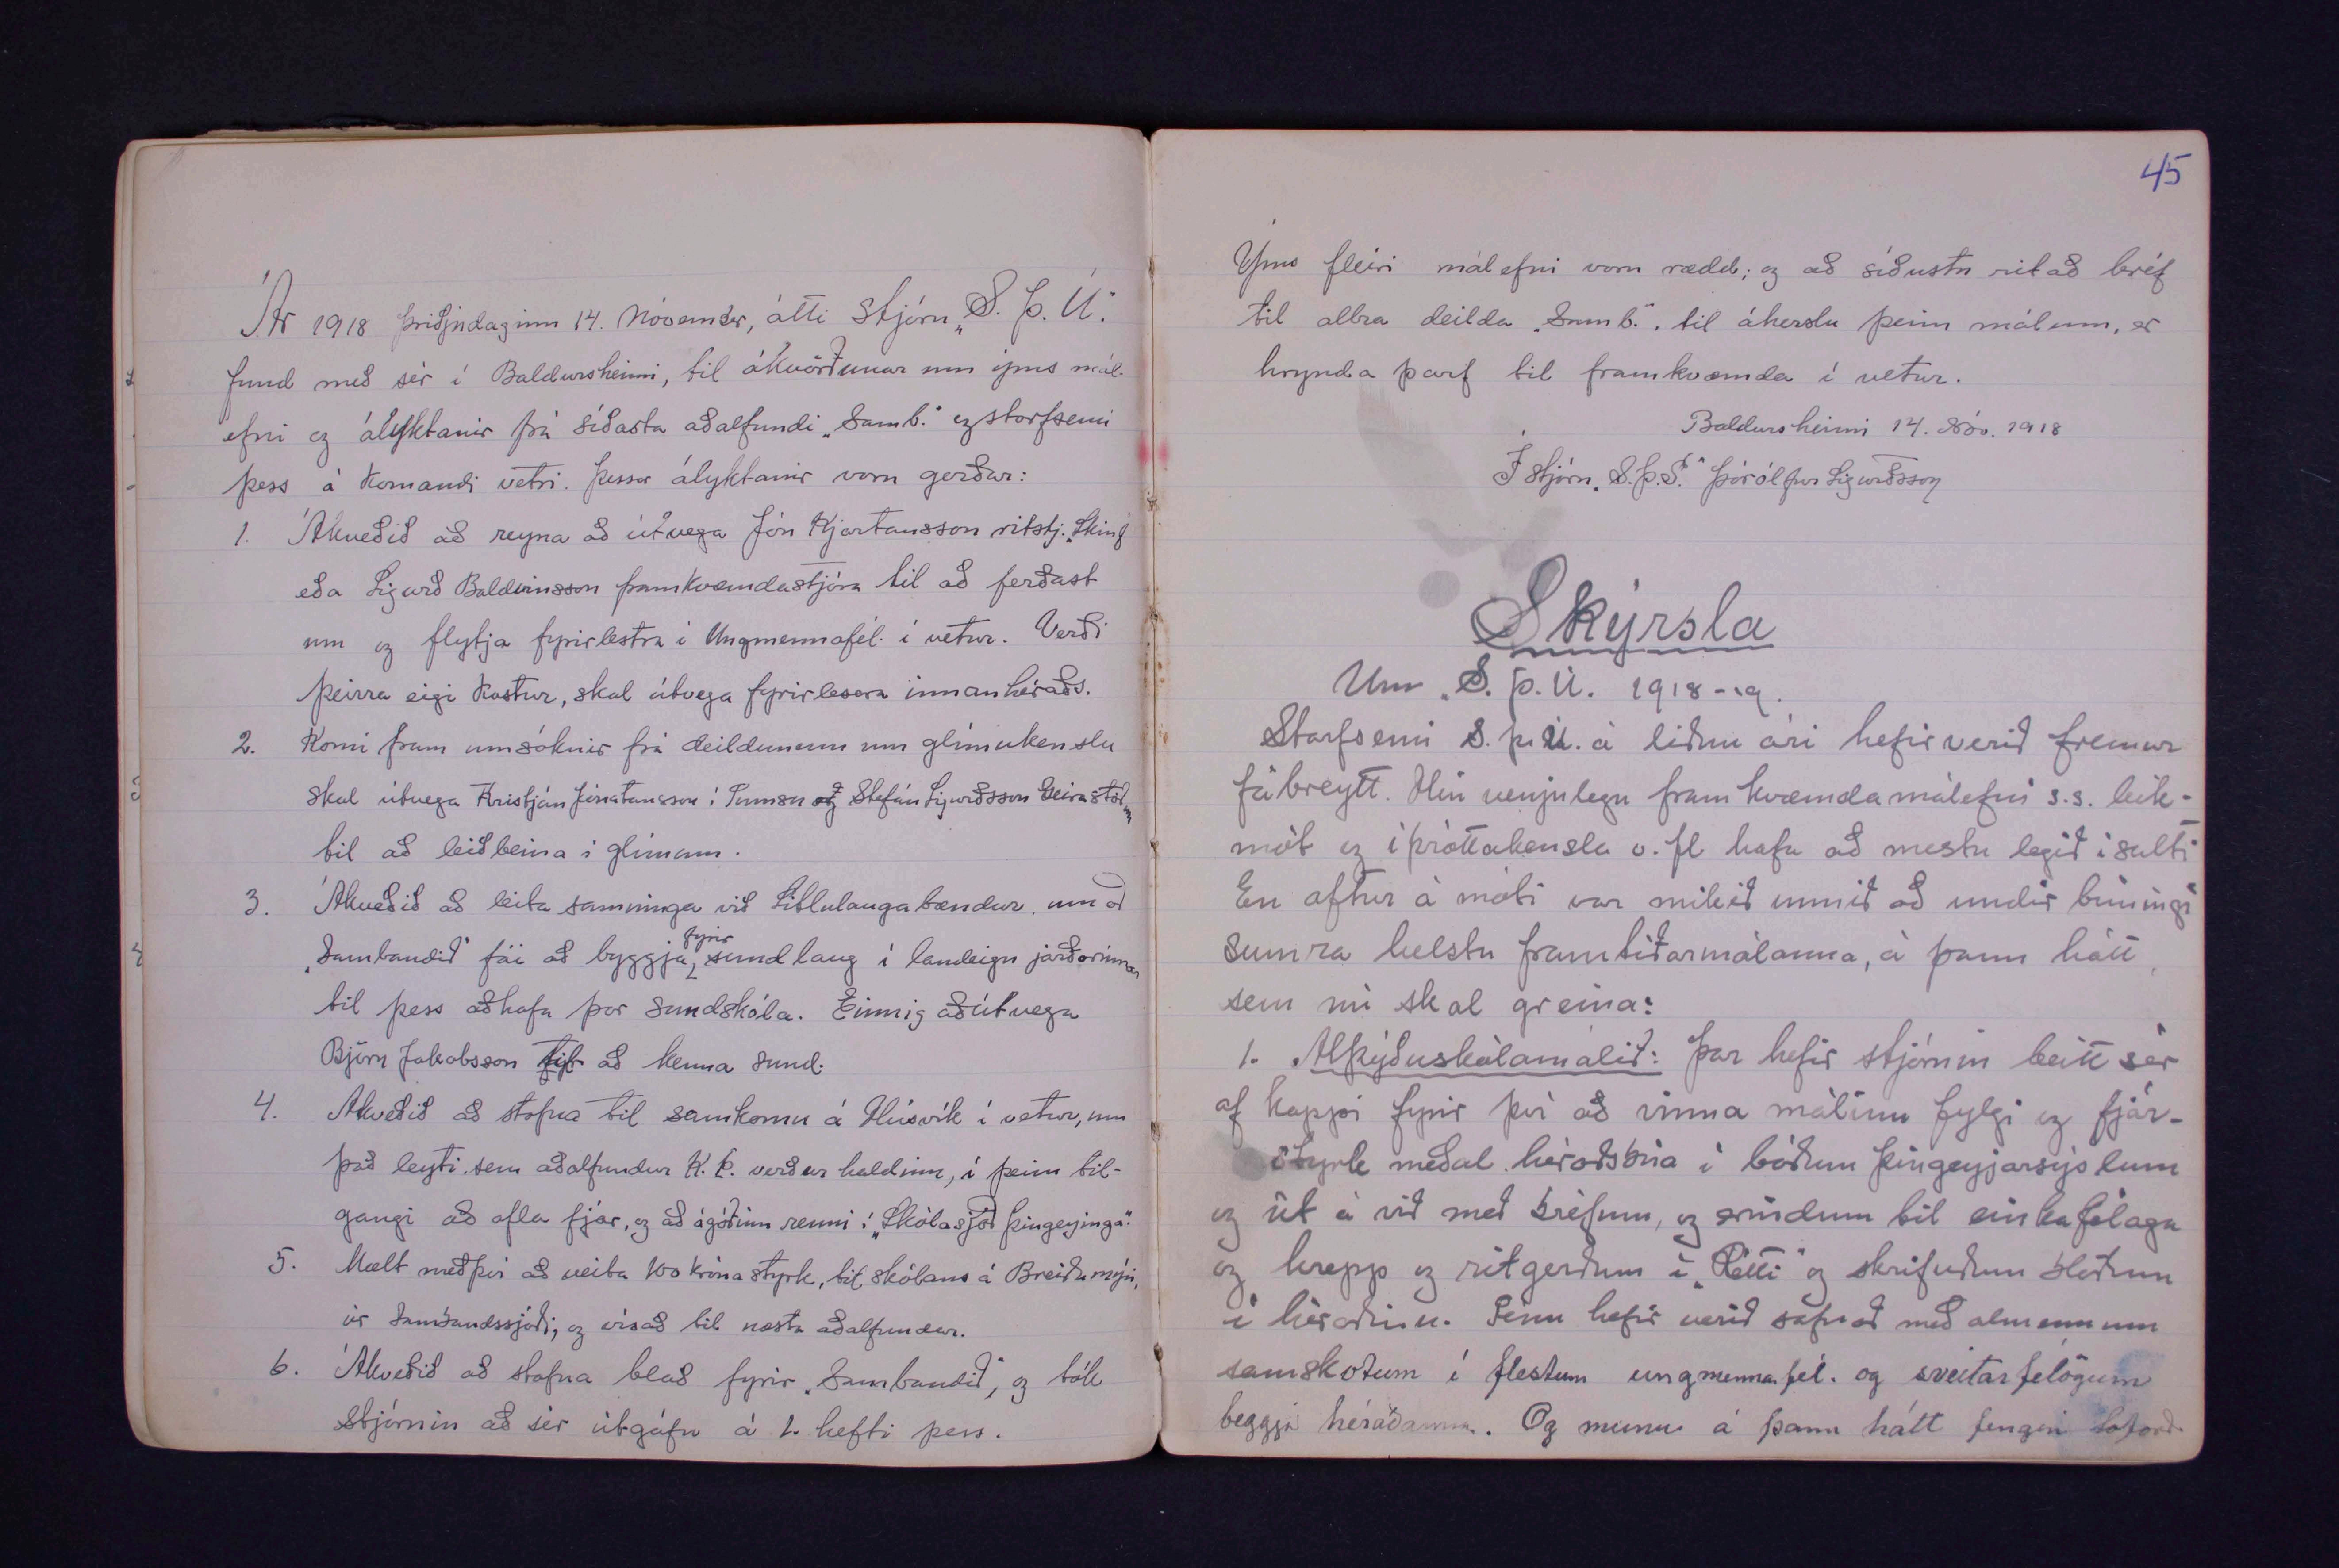 Ár 1918 þriðjudaginn 14. Nóvember, átti stjórn „S. Þ. U."
fund með sér í Baldursheimi, til ákvörðunar um ýms mál-
efni og ályktanir frá síðasta aðalfundi „Samb." og starfsemi
þess á komandi vetri. Þessar ályktanir voru gerðar:
1. Ákveðið að reyna að útvega Jón Kjartansson ritstj. „Skinf
eða Sigurð Baldvinsson framkvæmdastjóra til að ferðast
um og flytja fyrirlestra í Ungmennafél. í vetur. Verði
þeirra eigi kostur, skal útvega fyrirlesara innanhéraðs.
2. Komi fram umsóknir frá deildunum um glímukenslu
skal útvega Kristján Jónatansson í Tumsu og Stefán Sigurðsson Geirastöðum
til að leiðbeina í glímum.
3. Ákveðið að leita samninga við Litlulaugabændur, um að
„Sambandið" fái að byggja fyrir sundlaug í landeign jarðarinnar
til þess að hafa þar sundskóla. Einnig að útvega
Björn Jakobsson til að kenna sund.
4. Ákveðið að stofna til samkomu á Húsvík í vetur, um
það leyti sem aðalfundur K. Þ. verður haldinn, í þeim til-
gangi að afla fjár, og að ágóðinn renni í „Skólasjóð Þingeyinga".
5. Mælt með því að veita 100 króna styrk, til skólans á Breiðumýri,
úr Sambandssjóði; og vísað til næsta aðalfundar.
6. Ákveðið að stofna blað fyrir „Sambandið", og tók
stjórnin að sér útgáfu á 1. hefti þess.
45
Ýms fleiri málefni voru rædd; og að síðustu ritað bréf
til allra deilda „Samb.", til áherslu þeim málum, er
hrynda þarf til framkvæmda í vetur.
Baldursheimi 14. Nóv. 1918
Í stjórn „S.Þ.U." Þórólfur Sigurðsson
Skýrsla
Um „S. Þ. U. 1918-19.
Starfsemi S. Þ. U. á liðnu ári hefir verið fremur
fábreytt. Hin venjulegu framkvæmdamálefni s.s. leik-
mót og íþróttakensla o. fl hafa að mestu legið í salti
En aftur á móti var mikið unnið að undirbúningi
sumra helstu framtíðarmálanna, á þann hátt,
sem nú skal greina:
1. Alþýðuskólamálið: Þar hefir stjórnin beitt sér
af kappi fyrir því að vinna málinu fylgi og fjár-
styrk meðal héraðsbúa í báðum Þingeyjarsýslum
og út á við með bréfum, og erindum til einkafélaga
og hrepp og ritgerðum í „Rétti" og skrifuðum blöðum
í héraðinu. Fénu hefir verið safnað með almennum
samskotum í flestum ungmennafél. og sveitarfélögum
beggja héraðanna. Og munu á þann hátt fengin loforð